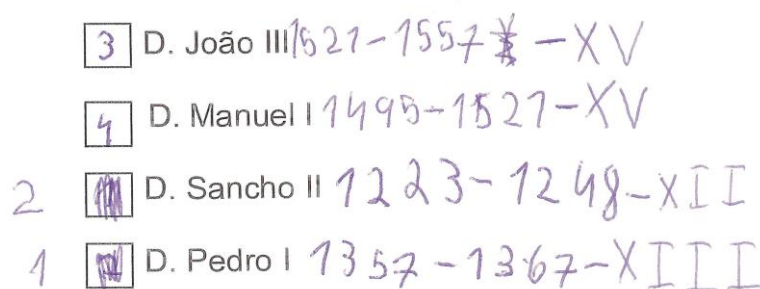 3 D. João III 1521-1557 - XV
4 D. Manuel I 1495-1521-XV
2 D. Sancho II 1223-1248-XII
1 D. Pedro I 1357-1367-XIII